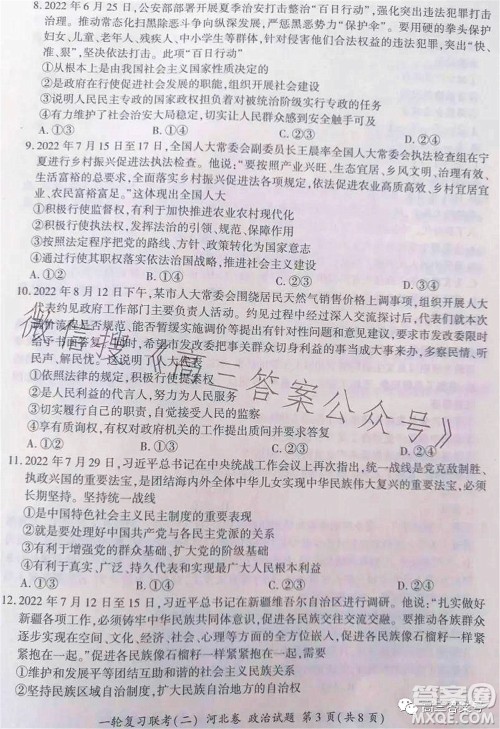 8. 2022年6月25日,公安部部署开展夏季治安打击整治“百日行动”,强化突出违法犯罪打击治理。推动常态化扫黑除恶斗争向纵深发展,严惩黑恶势力“保护伞”。要用硬的拳头保护妇女、儿童、老年人、残疾人、中小学生等群体,针对侵害他们合法权益的违法犯罪,突出“快、准、狠”,坚决打击。此项“百日行动”
①从根本上是由我国社会主义国家性质决定的
②是政府在行使促进社会发展的职能,组织开展社会建设
③说明人民民主专政的国家政权担负着对被统治阶级实行专政的任务
④有力维护了社会治安大局稳定,切实让人民群众感到安全触手可及
A. ①③ B. ①④ C. ②③ D. ②④
9. 2022年7月15日至17日,全国人大常委会副委员长王晨率全国人大常委会执法检查组在宁夏进行乡村振兴促进法执法检查。他说:“要按照产业兴旺、生态宜居、乡风文明、治理有效、生活富裕的总要求,全面落实乡村振兴促进法各项规定,依法促进农业高质高效、乡村宜居宜业、农民富裕富足。”这体现出全国人大
①积极行使监督权,有利于加快推进农业农村现代化
②积极行使职权,发挥法治的引领、规范、保障作用
③按照法定程序把党的路线、方针、政策转变为国家意志
④通过行使其职权落实依法治国战略,推进社会主义建设
A. ①② B. ①③ C. ②④ D. ③④
10. 2022年8月12日下午,某市人大常委会围绕居民天然气销售价格上调事项,组织开展人大代表约见政府工作部门主要负责人活动。约见过程中经过深入探究探讨后,代表们就本次
行为是否规范、能否暂缓调价等提出了有针对性的问题和意见建议,要求市发改委限时
希望市发改委把事关群众切身利益的事当成大事来办,多察民情、听民声、解民忧。此次约见说明了人大代表
①依照法律的规定,积极行使提案权
②是人民利益的代言人,努力为人民服务
③切实履行自己的职责,自觉接受人民的监督
④享有质询权,有权对政府工作提出质问并要求答复
A. ①② B. ①④ C. ②③ D. ③④
11. 2022年7月29日,习近平总书记在中央统战工作会议上再次指出,统一战线是党克敌制胜、执政兴国的重要法宝,是团结海内外全体中华儿女实现中华民族伟大复兴的重要法宝,必须长期坚持。坚持统一战线
①是中国特色社会主义民主制度的重要表现
②就是要处理好党的关系与各民主党派的关系
③有利于增强党的群众基础,扩大党的执政基础
④有利于真实、广泛、持续扩大中国民主的根本特征
A. ①② B. ①③ C. ②④ D. ③④
12. 2022年7月12日至15日,习近平总书记在新疆维吾尔自治区进行调研。他说:“扎实做好新疆各项工作,必须铸牢中华民族共同体意识,促进各民族交往交流交融。要推动各族群众逐步实现在空间、文化、经济、社会、心理等方面的全方位嵌入,促进各民族像石榴籽一样紧紧抱在一起。”促进各民族像石榴籽一样紧紧抱在一起,需要
①继续发展平等团结互助和谐的社会主义民族关系
②坚持民族区域自治制度,扩大民族自治地方的自治权限
一轮复习联考(二) 河北卷 政治试题 第3页(共8页)
微信搜《高三答案公众号》
答案圈
MXQE.COM